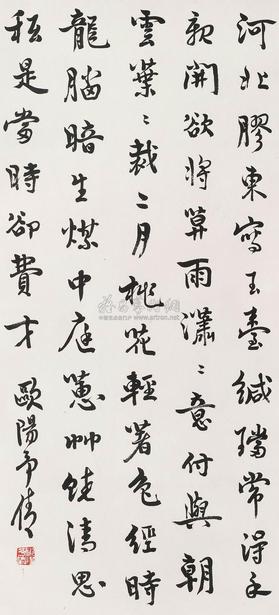 河北膠東寫玉臺緘璫常得手
親開欲將算雨瀟〻意付與朝
雲葉〻裁二月桃花輕著色經時
龍腦暗生煤中庭蕙艸饒清思
私是當時卻費才
歐陽予倩